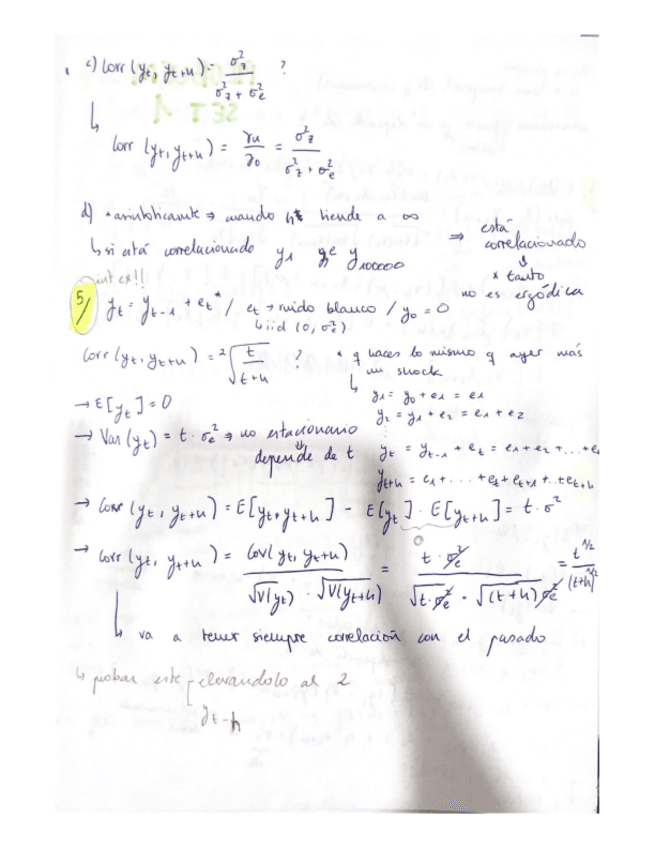 c) Corr (yt, yt+h) = σ²z / σ²z + σ²e ?
↳ Corr (yt, yt+h) = γh / γ0 = σ²z / σ²z + σ²e
d) ⇒ cuando h tiende a ∞
↳ si está correlacionado y1 y100000 ⇒ está correlacionado
x tanto no es ergódica
int ex!!
5/ yt = yt-1 + et* / et → ruido blanco / y0 = 0
↳ iid (0, σ²e)
Corr (yt, yt+h) = ²√ t / t+h ?
* q haces lo mismo q ayer más un shock
↳ y1 = y0 + e1 = e1
y2 = y1 + e2 = e1 + e2
yt = yt-1 + et = e1 + e2 + ... + et
yt+h = e1 + ... + et + et+1 + .. + et+h
→ E[yt] = 0
→ Var (yt) = t · σ²e ⇒ no estacionario
depende de t
→ Cov (yt, yt+h) = E[yt, yt+h] - E[yt] · E[yt+h] = t · σ²
0
→ Corr (yt, yt+h) = Cov(yt, yt+h) / √V(yt) · √V(yt+h) = t · σ²e / √t · σ²e · √(t+h) σ²e = t^1/2 / (t+h)^1/2
↳ va a tener siempre correlación con el pasado
↳ probar este elevandolo al 2
yt-h